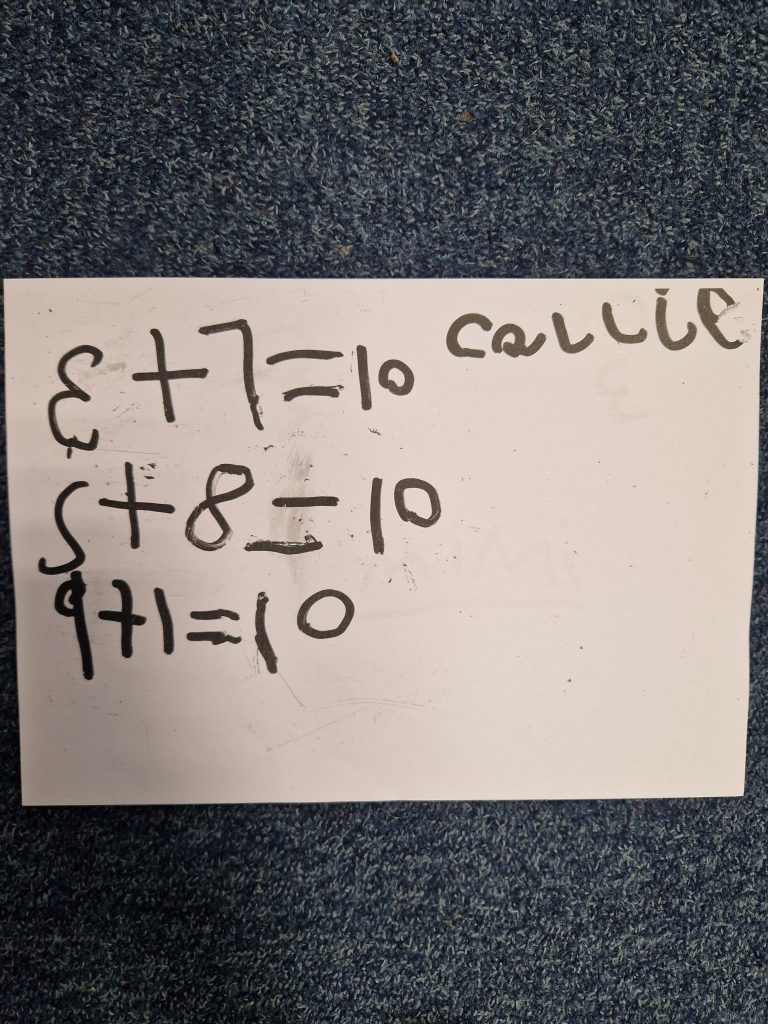 callie
3+7=10
2+8=10
9+1=10